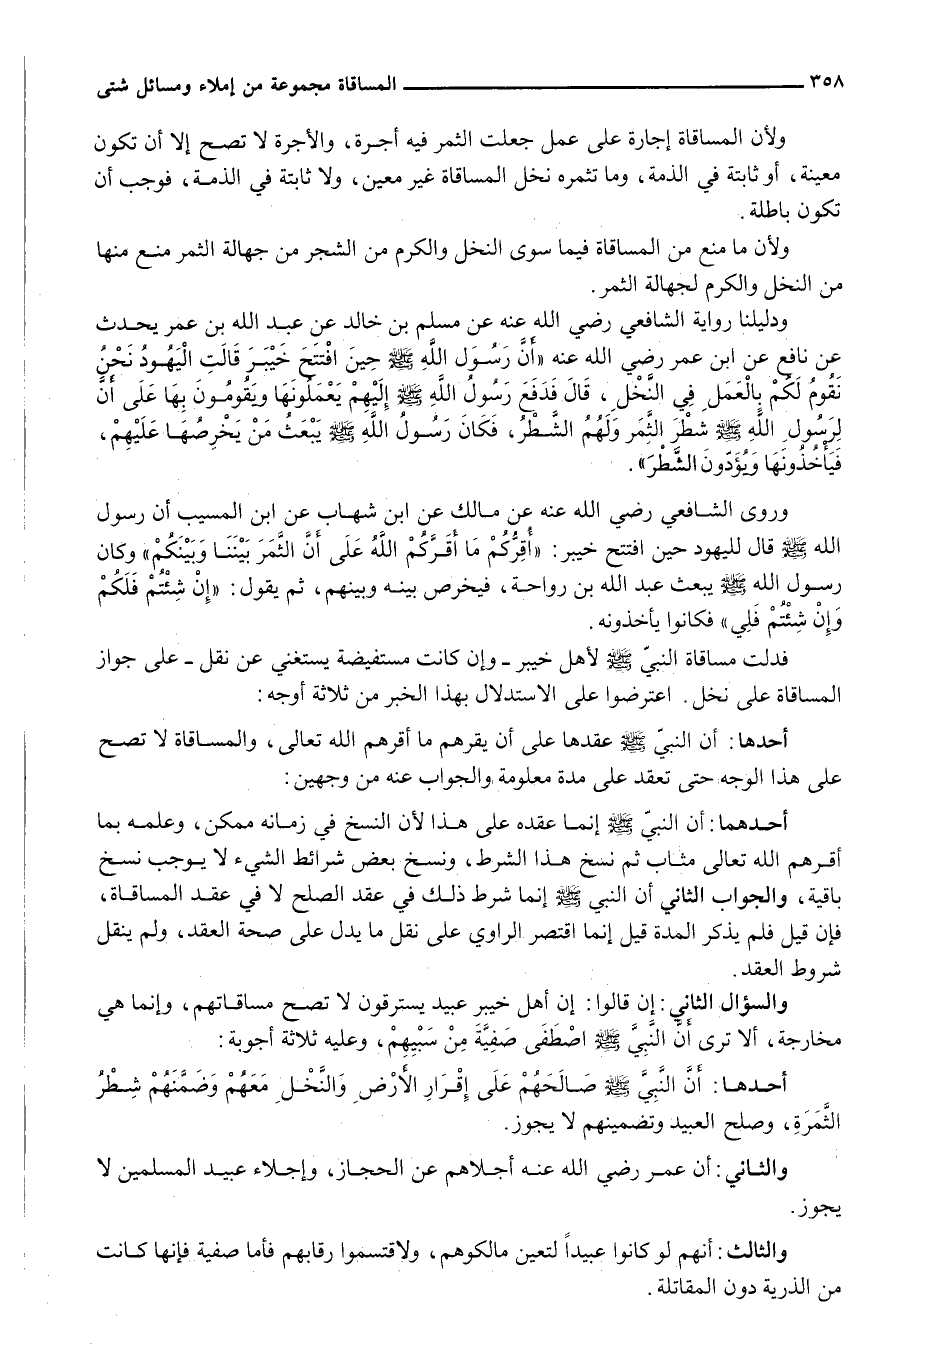 ٣٥٨ ــــــــــــــــــــ المساقاة مجموعة من إملاء ومسائل شتى
ولأن المساقاة إجارة على عمل جعلت الثمر فيه أجرة، والأجرة لا تصح إلا أن تكون
معينة، أو ثابتة في الذمة، وما تثمره نخل المساقاة غير معين، ولا ثابتة في الذمة، فوجب أن
تكون باطلة.
ولأن ما منع من المساقاة فيما سوى النخل والكرم من الشجر من جهالة الثمر منع منها
من النخل والكرم لجهالة الثمر.
ودليلنا رواية الشافعي رضي الله عنه عن مسلم بن خالد عن عبد الله بن عمر يحدث
عن نافع عن ابن عمر رضي الله عنه «أَنَّ رَسُوَل اللَّهِ ﷺ حِينَ افْتَتَحَ خَيْبَرَ قَالَتِ الْيَهُودُ نَحْنُ
نَقُومُ لَكُمْ بِالْعَمَلِ فِي النَّخْلِ، قَالَ فَدَفَعَ رَسُولُ اللَّهِ ﷺ إِلَيْهِمْ يَعْمَلُونَهَا وَيَقُومُونَ بِهَا عَلَى أَنَّ
لِرَسُولِ اللَّهِ ﷺ شَطْرَ الثَّمَرِ وَلَهُمُ الشَّطْرُ، فَكَانَ رَسُولُ اللَّهِ ﷺ يَبْعَثُ مَنْ يَخْرِصُهَا عَلَيْهِمْ،
فَيَأْخُذُونَهَا وَيُؤَدّونَ الشَّطْرَ».
وروى الشافعي رضي الله عنه عن مالك عن ابن شهاب عن ابن المسيب أن رسول
الله ﷺ قال لليهود حين افتتح خيبر: «أُقِرُّكُمْ مَا أَقَرَّكُمْ اللَّهُ عَلَى أَنَّ الثَّمَرَ بَيْنَنَا وَبَيْنَكُمْ» وكان
رسول الله ﷺ يبعث عبد الله بن رواحة، فيخرص بينه وبينهم، ثم يقول: «إِنْ شِئْتُمْ فَلَكُمْ
وَإِنْ شِئْتُمْ فَلِي» فكانوا يأخذونه.
فدلت مساقاة النبيّ ﷺ لأهل خيبر ـ وإن كانت مستفيضة يستغني عن نقل ـ على جواز
المساقاة على نخل. اعترضوا على الاستدلال بهذا الخبر من ثلاثة أوجه:
أحدها: أن النبيّ ﷺ عقدها على أن يقرهم ما أقرهم الله تعالى، والمساقاة لا تصح
على هذا الوجه حتى تعقد على مدة معلومة والجواب عنه من وجهين:
أحدهما: أن النبيّ ﷺ إنما عقده على هذا لأن النسخ في زمانه ممكن، وعلمه بما
أقرهم الله تعالى مثاب ثم نسخ هذا الشرط، ونسخ بعض شرائط الشيء لا يوجب نسخ
باقية، والجواب الثاني أن النبي ﷺ إنما شرط ذلك في عقد الصلح لا في عقد المساقاة،
فإن قيل فلم يذكر المدة قيل إنما اقتصر الراوي على نقل ما يدل على صحة العقد، ولم ينقل
شروط العقد.
والسؤال الثاني: إن قالوا: إن أهل خيبر عبيد يسترقون لا تصح مساقاتهم، وإنما هي
مخارجة، ألا ترى أَنَّ النَّبِيَّ ﷺ اصْطَفَى صَفِيَّةَ مِنْ سَبْيِهِمْ، وعليه ثلاثة أجوبة:
أحدها: أَنَّ النَّبِيَّ ﷺ صَالَحَهُمْ عَلَى إِقْرَارِ الأَرْضِ وَالنَّخْلِ مَعَهُمْ وَضَمَّنَهُمْ شِطْرُ
الثَّمَرَةِ، وصلح العبيد وتضمينهم لا يجوز.
والثاني: أن عمر رضي الله عنه أجلاهم عن الحجاز، وإجلاء عبيد المسلمين لا
يجوز.
والثالث: أنهم لو كانوا عبيداً لتعين مالكوهم، ولاقتسموا رقابهم فأما صفية فإنها كانت
من الذرية دون المقاتلة.